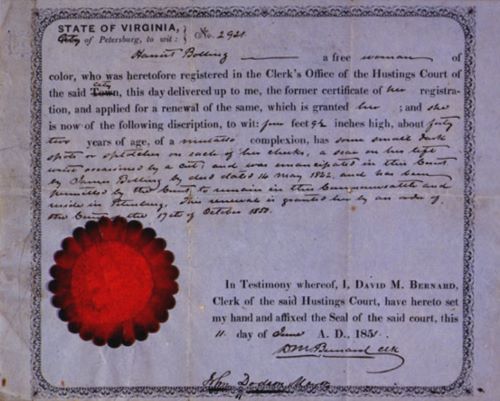 STATE OF VIRGINIA,
City of Petersburg, to wit: No. 2921
Harriet Bolling a free woman of
color, who was heretofore registered in the Clerk's Office of the Hustings Court of
the said Town, City this day delivered up to me, the former certificate of her registra-
tion, and applied for a renewal of the same, which is granted her ; and she
is now of the following discription, to wit: five feet 9½ inches high, about forty
two years of age, of a mulatto complexion, has some small dark
spots or splotches on each of her cheeks, a scar on her left
wrist occasioned by a cut, and was emancipated in this Court
by James Bolling by deed dated 14 May 1842, and has been
permitted by the Court to remain in this Commonwealth and
reside in Petersburg. This renewal is granted her by an order of
the Court the 17th of October 1850.
In Testimony whereof, I, DAVID M. BERNARD,
Clerk of the said Hustings Court, have hereto set
my hand and affixed the Seal of the said court, this
11 day of June A. D., 1851
D M Bernard Clk
John Dodson Mayor